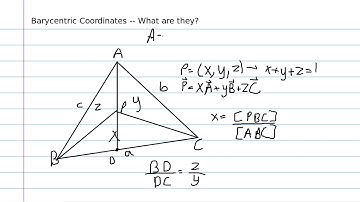 Barycentric Coordinates -- What are they?
A-
A
P=(x,y,z) → x+y+z=1
P=xA+yB+zC
c
z
P
y
b
x = [PBC]/[ABC]
x
B
D
a
C
BD/DC = z/y